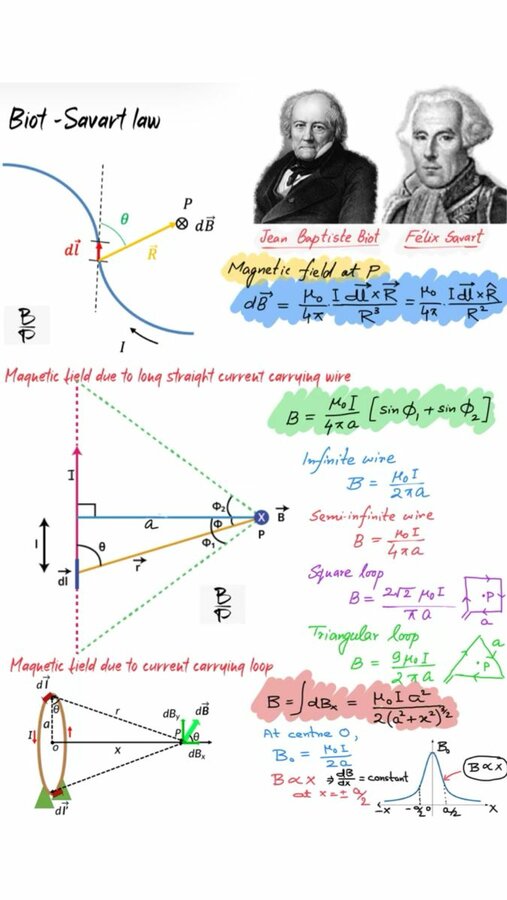 Biot - Savart law
P
θ
dB⃗
dl⃗
R⃗
I
B/P
Jean Baptiste Biot
Félix Savart
Magnetic field at P
dB⃗ = μ₀/4π · I dl⃗ × R⃗/R³ = μ₀/4π · I dl⃗ × R̂/R²
Magnetic field due to long straight current carrying wire
I
a
l
θ
dl⃗
r⃗
Φ₂
Φ
Φ₁
X
P
B⃗
B/P
B = μ₀I/4πa [sin Φ₁ + sin Φ₂]
Infinite wire
B = μ₀I/2πa
Semi-infinite wire
B = μ₀I/4πa
Square loop
B = 2√2 μ₀I/πa
•P
a
Triangular loop
B = 9μ₀I/2πa
a
•P
Magnetic field due to current carrying loop
dl⃗
θ
a
r
I
o
x
dBy
dB⃗
P
θ
dBx
dl⃗'
B = ∫dBx = μ₀I a²/2(a²+x²)^3/2
At centre O,
B₀ = μ₀I/2a
B ∝ x ⇒ dB/dx = constant
at x = ± a/2
B₀
B ∝ x
-x
-a/2
o
a/2
x